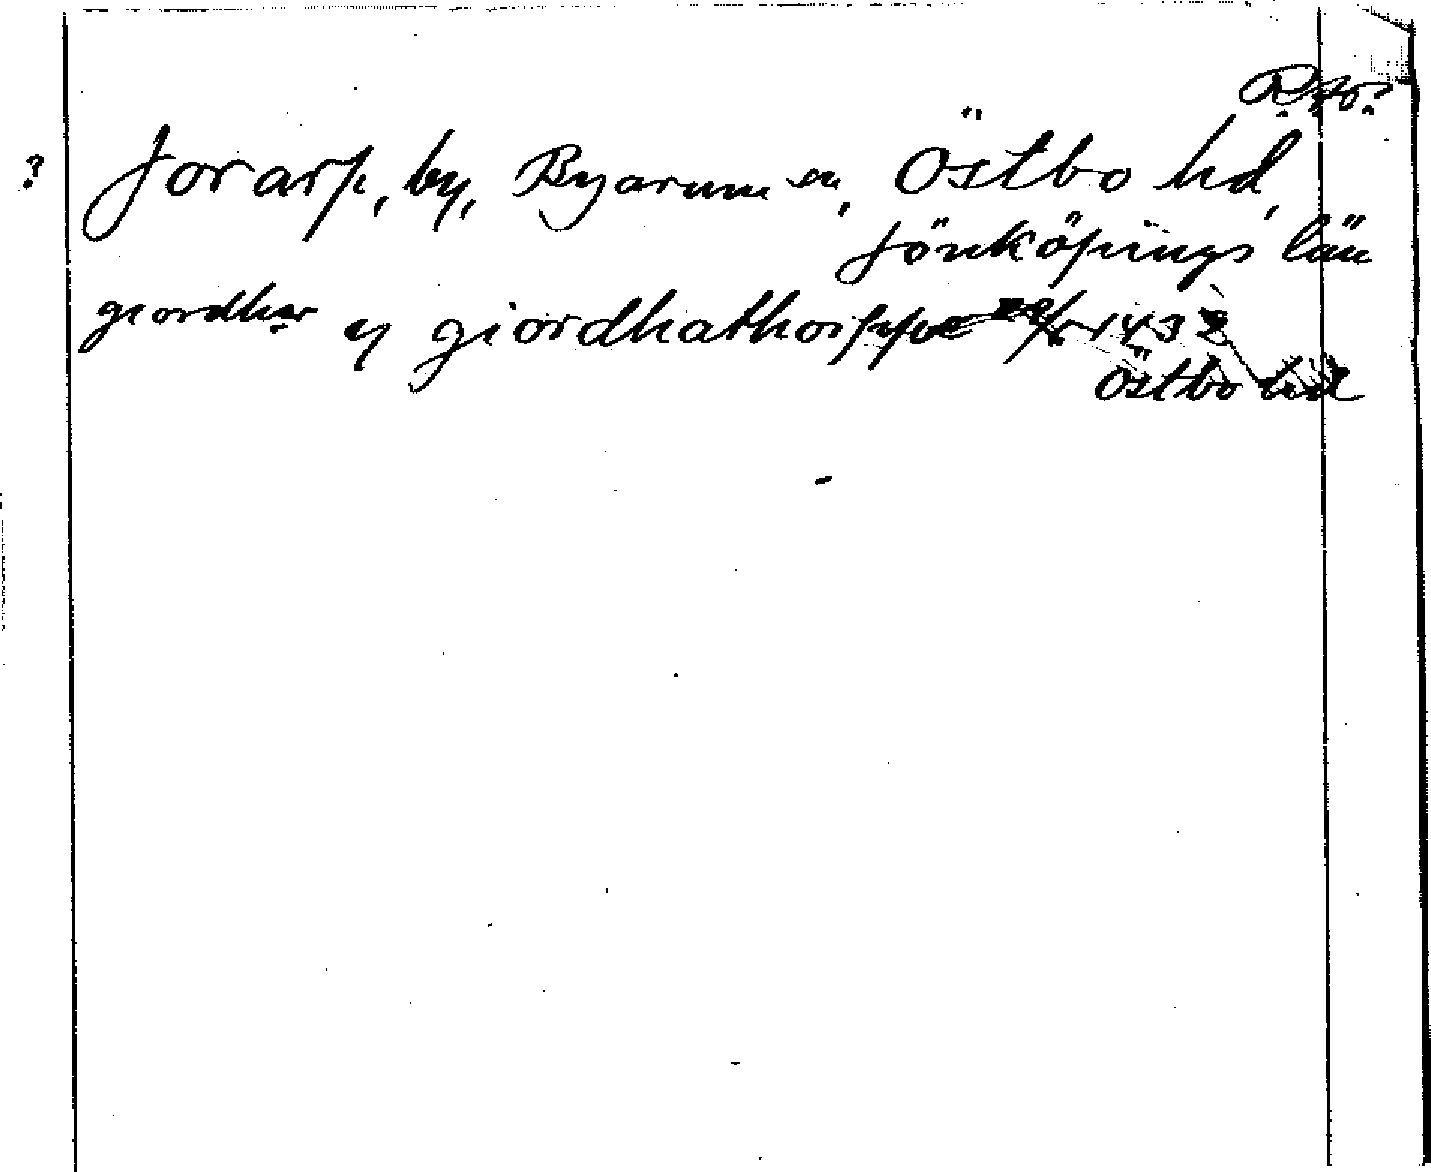 ? Jorarp, by, Byarum sn, Östbo hd,
Jönköpings län
giordhar ej giordhathorppe 1432
Östbo hd